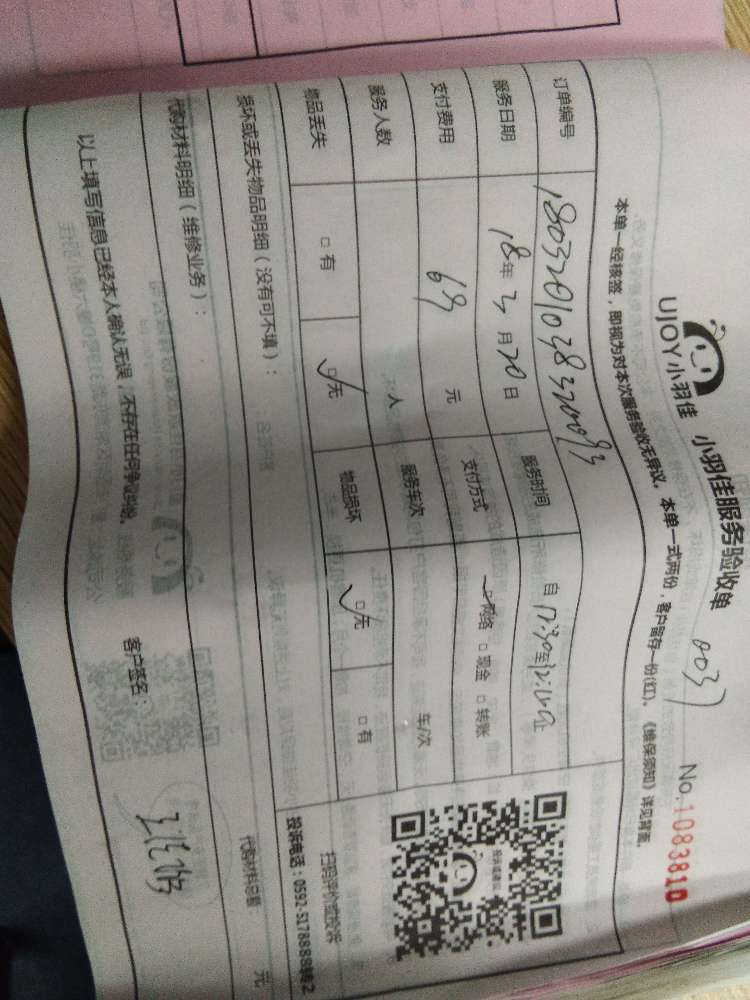 UJOY小羽佳 小羽佳服务验收单 0037 No.1083810
本单一经核签，即视为对本次服务验收无异议。本单一式两份，客户留存一份(红)。《维保须知》详见背面。
订单编号
服务日期 18年3月20日 服务时间 自 至 止
支付费用 68 元 支付方式 ☑网络 □现金 □转账
服务人数 人 服务车次 车/次
物品丢失 □有 ☑无 物品损坏 ☑无 □有
投诉或建议
扫码评价或投诉
投诉电话：0592-5178888转2
损坏或丢失物品明细（没有可不填）：
代购材料明细（维修业务）： 代购材料总量： 元
以上填写信息已经本人确认无误，不存在任何争议纠纷。 客户签名：